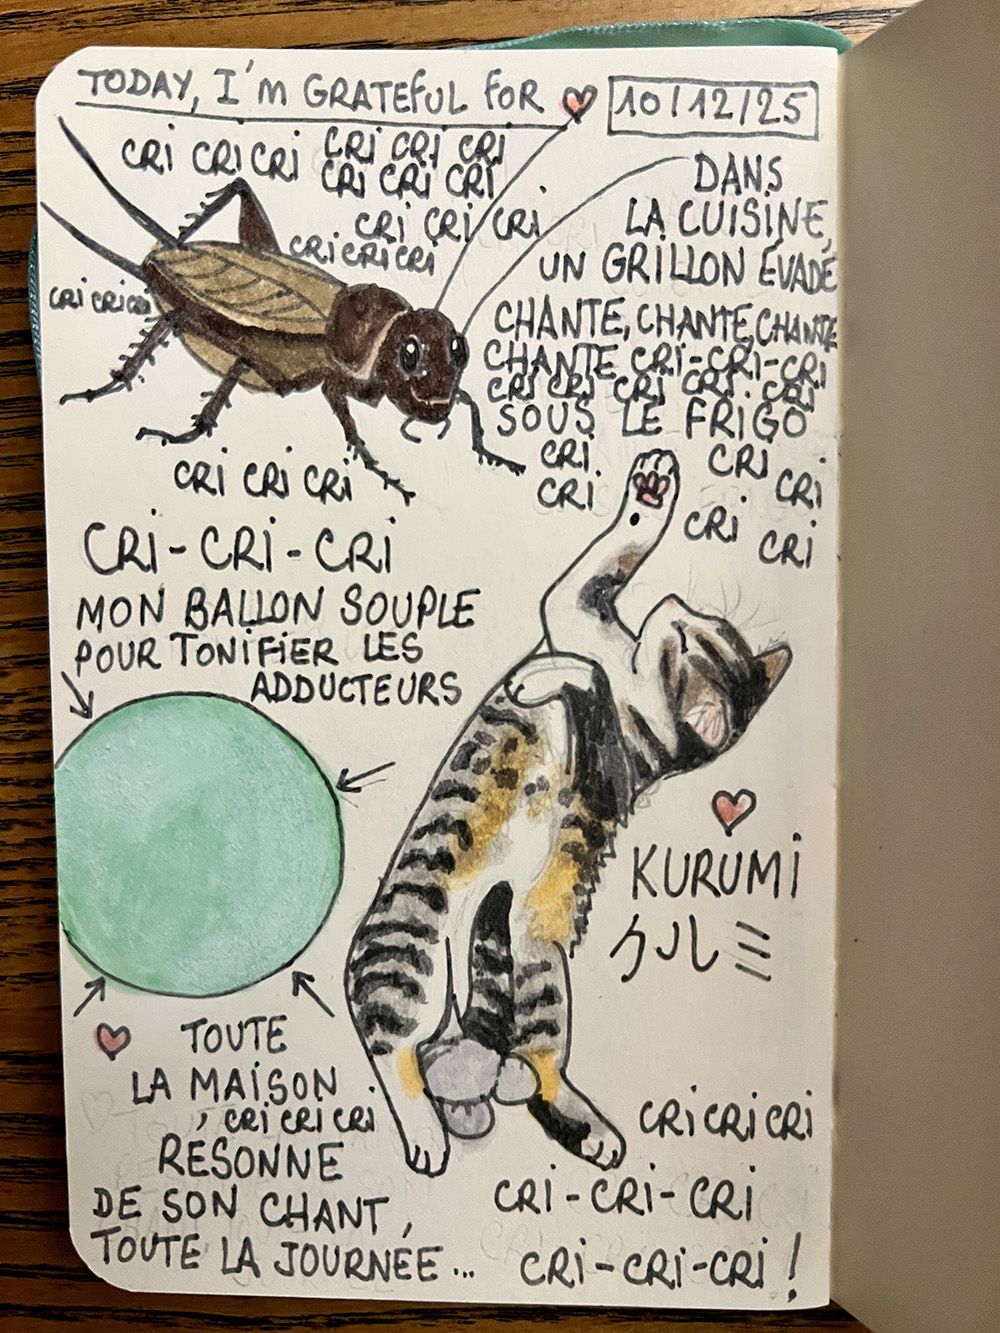 TODAY, I'M GRATEFUL FOR
10/12/25
CRI CRI CRI CRI CRI CRI
CRI CRI CRI
CRI CRI CRI
CRI CRI CRI
CRI CRI CRI
DANS
LA CUISINE,
UN GRILLON ÉVADÉ
CHANTE, CHANTE, CHANTE
CHANTE CRI-CRI-CRI
CRI CRI CRI CRI CRI
SOUS LE FRIGO
CRI CRI
CRI CRI
CRI
CRI
CRI CRI CRI
CRI-CRI-CRI
MON BALLON SOUPLE
POUR TONIFIER LES
ADDUCTEURS
KURUMI
クルミ
TOUTE
LA MAISON
CRI CRI CRI
RÉSONNE
DE SON CHANT,
TOUTE LA JOURNÉE...
CRI CRI CRI
CRI-CRI-CRI
CRI-CRI-CRI !